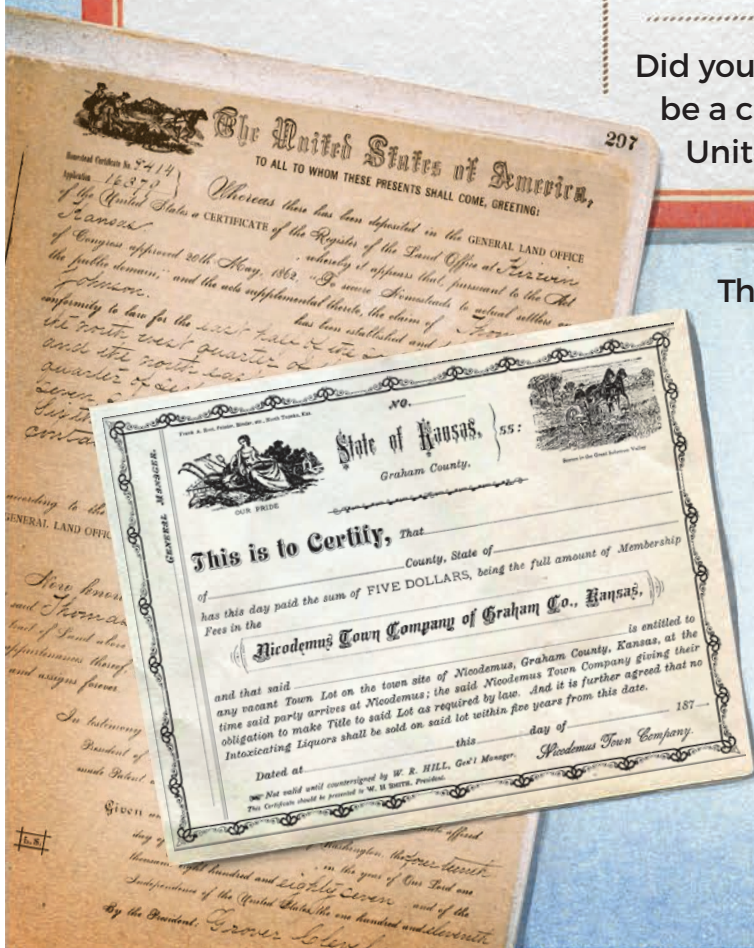 Did you
be a c
Unit
Th
207
The United States of America,
TO ALL TO WHOM THESE PRESENTS SHALL COME, GREETING:
Homestead Certificate No. 9414
Application 16378
Whereas there has been deposited in the GENERAL LAND OFFICE
of the United States a CERTIFICATE of the Register of the Land Office at Kirwin
Kansas, whereby it appears that, pursuant to the Act
of Congress approved 20th May, 1862, "To secure Homesteads to actual settlers on
the public domain," and the acts supplemental thereto, the claim of
Johnson. has been established and
conformity to law for the east half of the
the north west quarter of
and the north ea
quarter of Sec
Seven
according to the
GENERAL LAND OFFIC
Now know
said Thomas
tract of Land above
appurtenances thereof
and assigns forever
In testimony
President of
made Patent
Given
L. S.
day of Washington, the fourteenth
thousand eight hundred and eighty seven, in the year of Our Lord one
Independence of the United States the one hundred and eleventh and of the
By the President: Grover Clevel
Frank A. Root, Printer, Binder, etc., North Topeka, Kas.
NO.
State of Kansas, } SS:
Graham County.
OUR PRIDE
Scene in the Great Solomon Valley
GENERAL MANAGER.
This is to Certify, That
of County, State of
has this day paid the sum of FIVE DOLLARS, being the full amount of Membership
Fees in the
Nicodemus Town Company of Graham Co., Kansas,
and that said is entitled to
any vacant Town Lot on the town site of Nicodemus, Graham County, Kansas, at the
time said party arrives at Nicodemus; the said Nicodemus Town Company giving their
obligation to make Title to said Lot as required by law. And it is further agreed that no
Intoxicating Liquors shall be sold on said lot within five years from this date.
Dated at this day of 187
Nicodemus Town Company.
Not valid until countersigned by W. R. HILL, Gen'l Manager.
This Certificate should be presented to W. H SMITH, President.